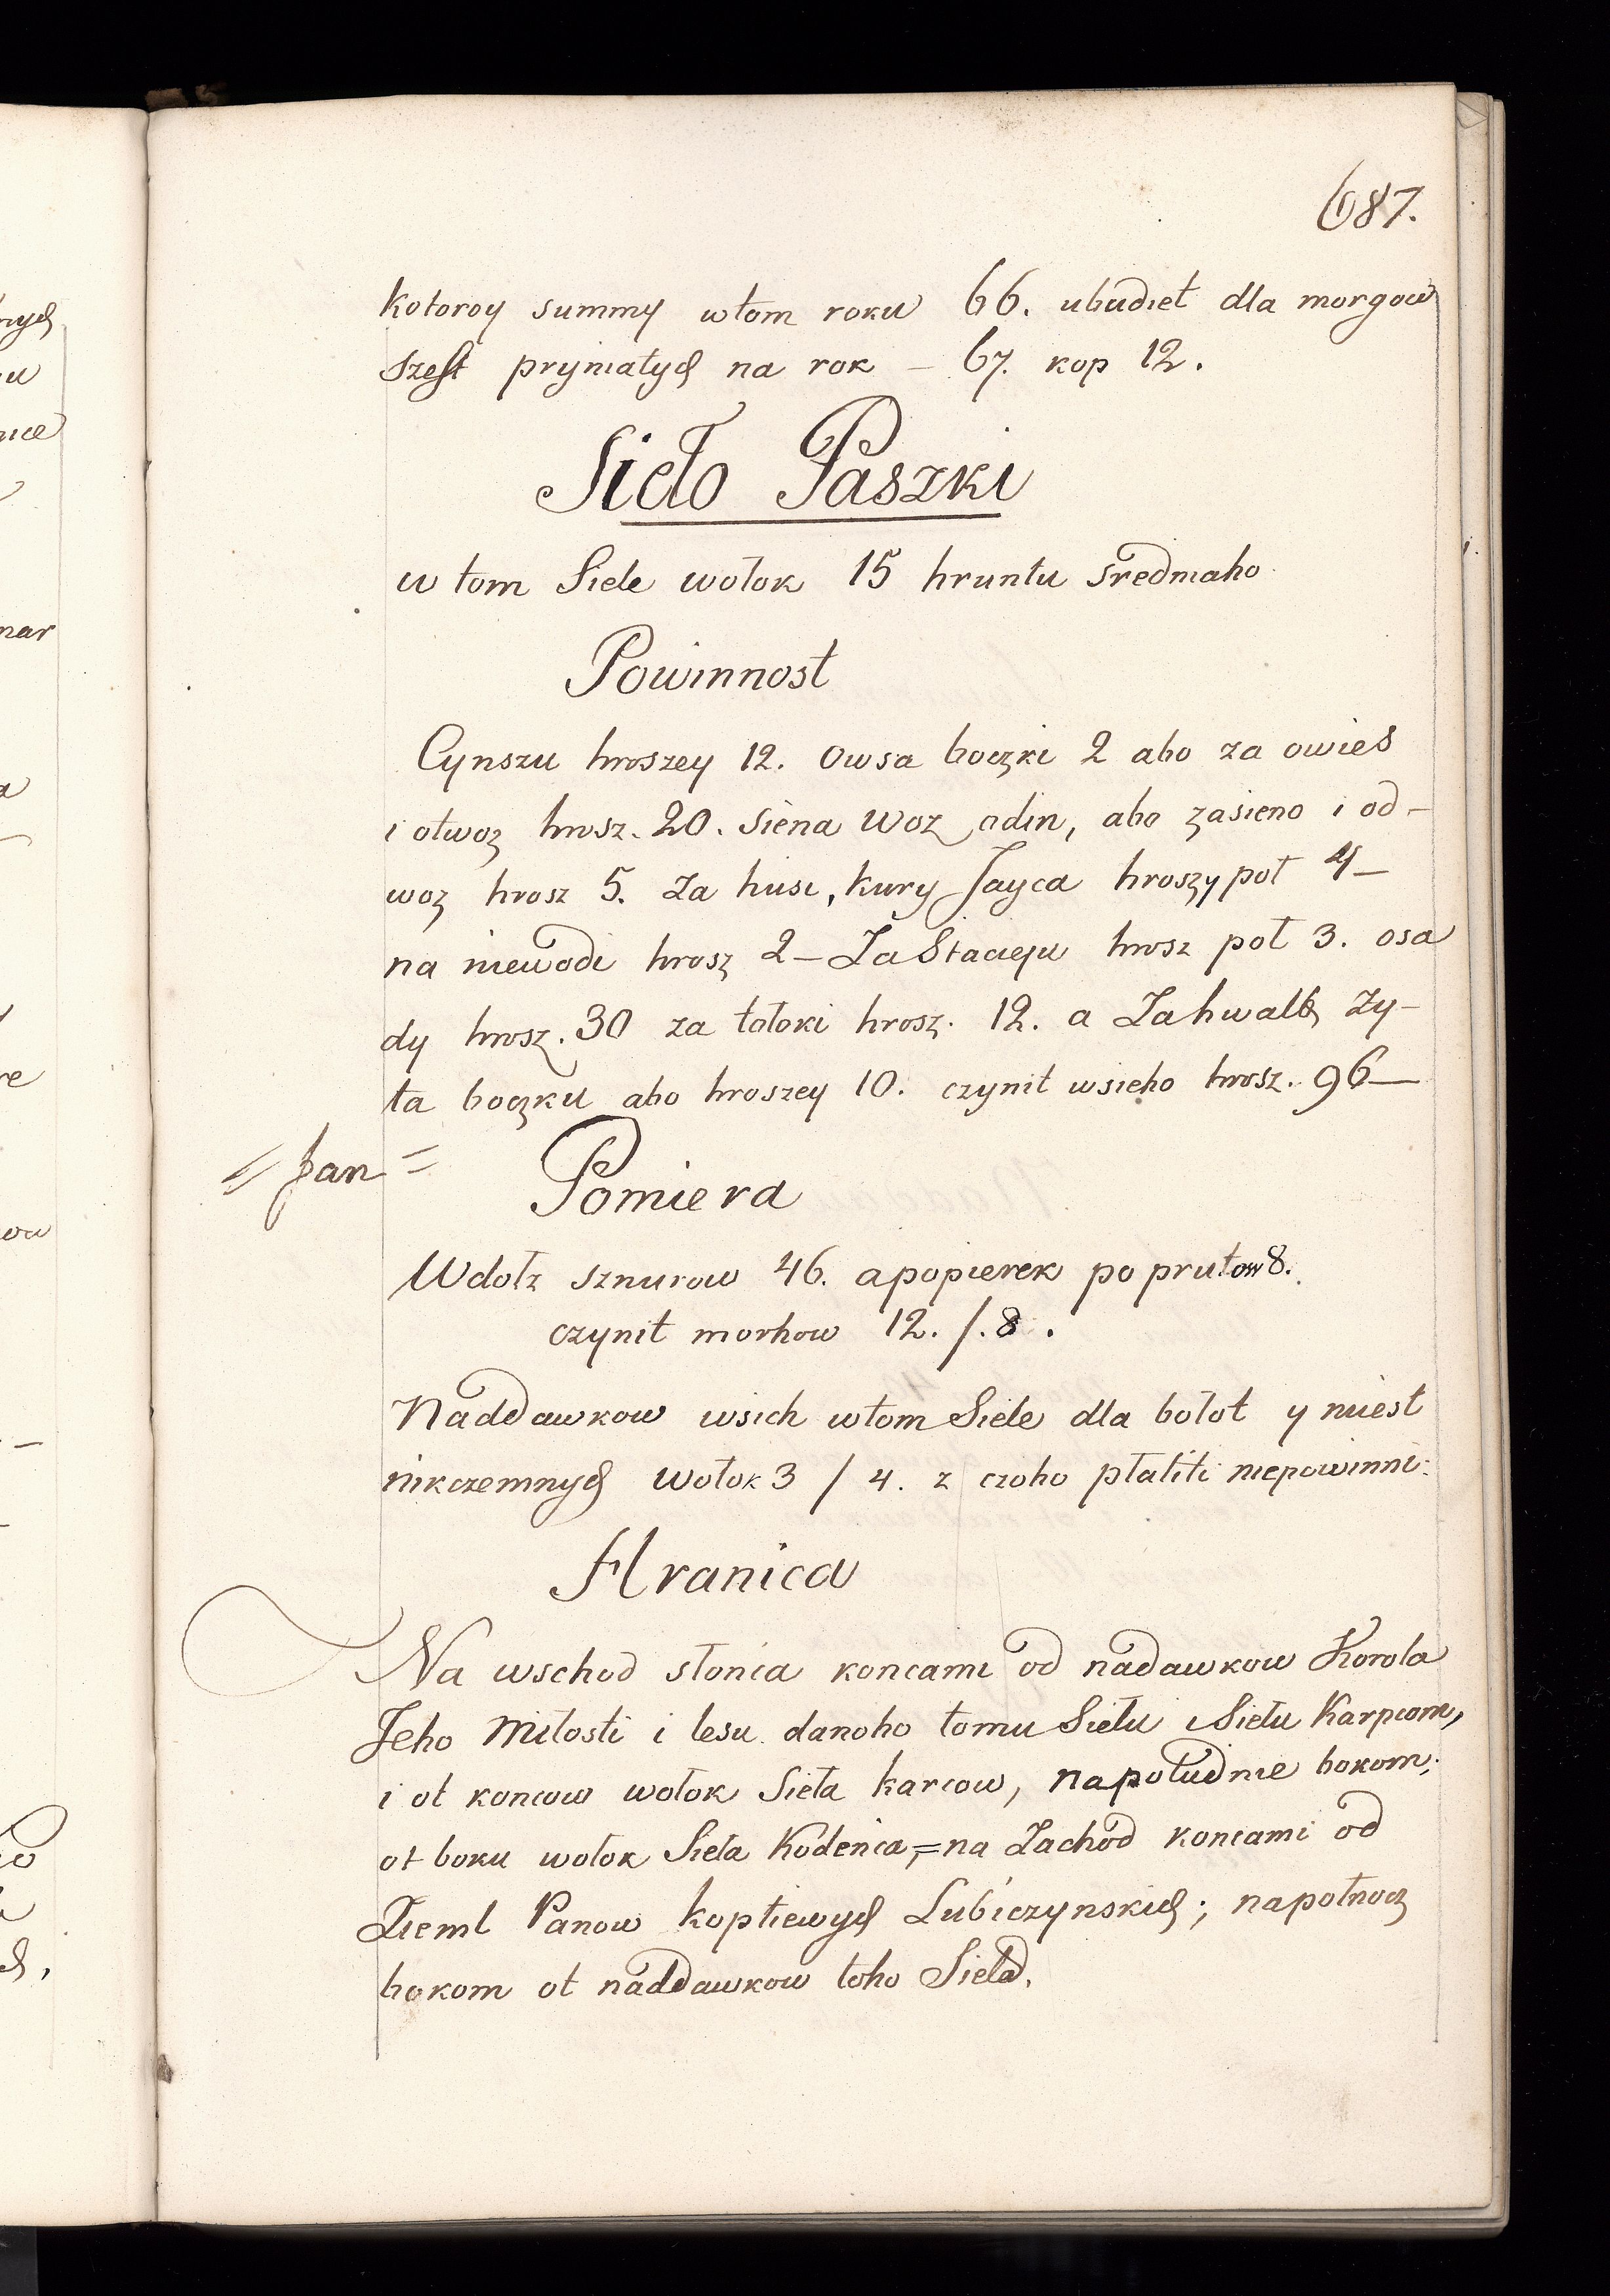 687.
kotoroy summy wtom roku 66. ubudiet dla morgow
szest pryniatych na rok – 67. kop 12.
Sieło Paszki
w tom Siele wołok 15 hruntu sredniaho
Powinnost
Cynszu hroszey 12. Owsa boczki 2 abo za owies
i otwoz hrosz. 20. Siena woz odin, abo zasieno i od–
woz hrosz 5. Za husi, kury Jayca hroszy poł 4–
na niewodi hrosz 2– Za Stacieju hrosz poł 3. osa
dy hrosz. 30 za tołoki hrosz. 12. a Zahwałt Zy–
ta boczku abo hroszey 10. czynit wsieho hrosz. 96–
= Jan =
Pomiera
Wdołz sznurow 46. apopierek po prutow 8.
czynit morhow 12. /. 8.
Naddawkow wsich wtom Siele dla bołot y miest
nikczemnych wołok 3 / 4. z czoho płatiti niepowinni.
Hranica
Na wschod słonca koncami od nadawkow Korola
Jeho Miłosti i lesu danoho tomu Siełu i Siełu Karpcom,
i ot koncow wołok Sieła karcow, napołudnie bokom;
ot boku wołok Sieła Kodenca,= na Zachod koncami od
Zieml Panow koptiewych Lubiczynskich; napołnocz
bokom ot naddawkow toho Sieła.